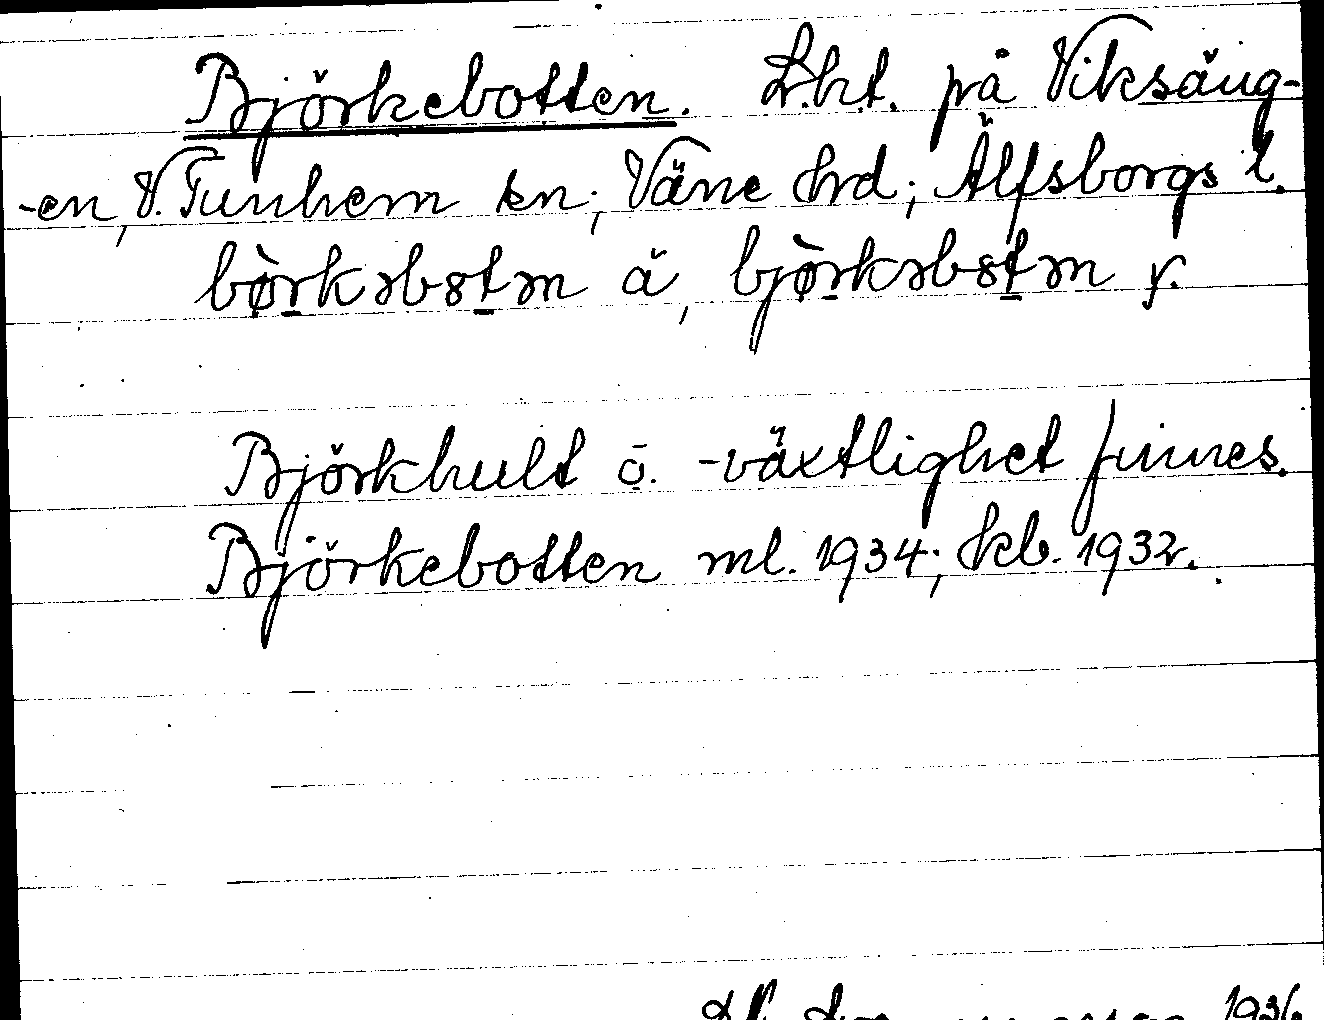 Björkebotten. L.ht. på Viksäng-
-en, V. Tunhem sn; Väne hrd; Älfsborgs l.
ä, y.
Björkhult o. -växtlighet finnes.
Björkebotten ml. 1934; Jkb. 1932.
1936